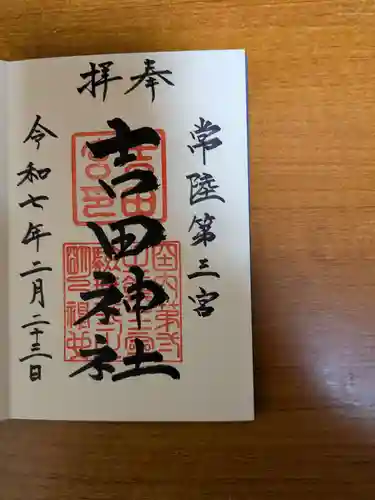 奉拝
常陸第三宮
吉田神社
令和七年二月二十三日